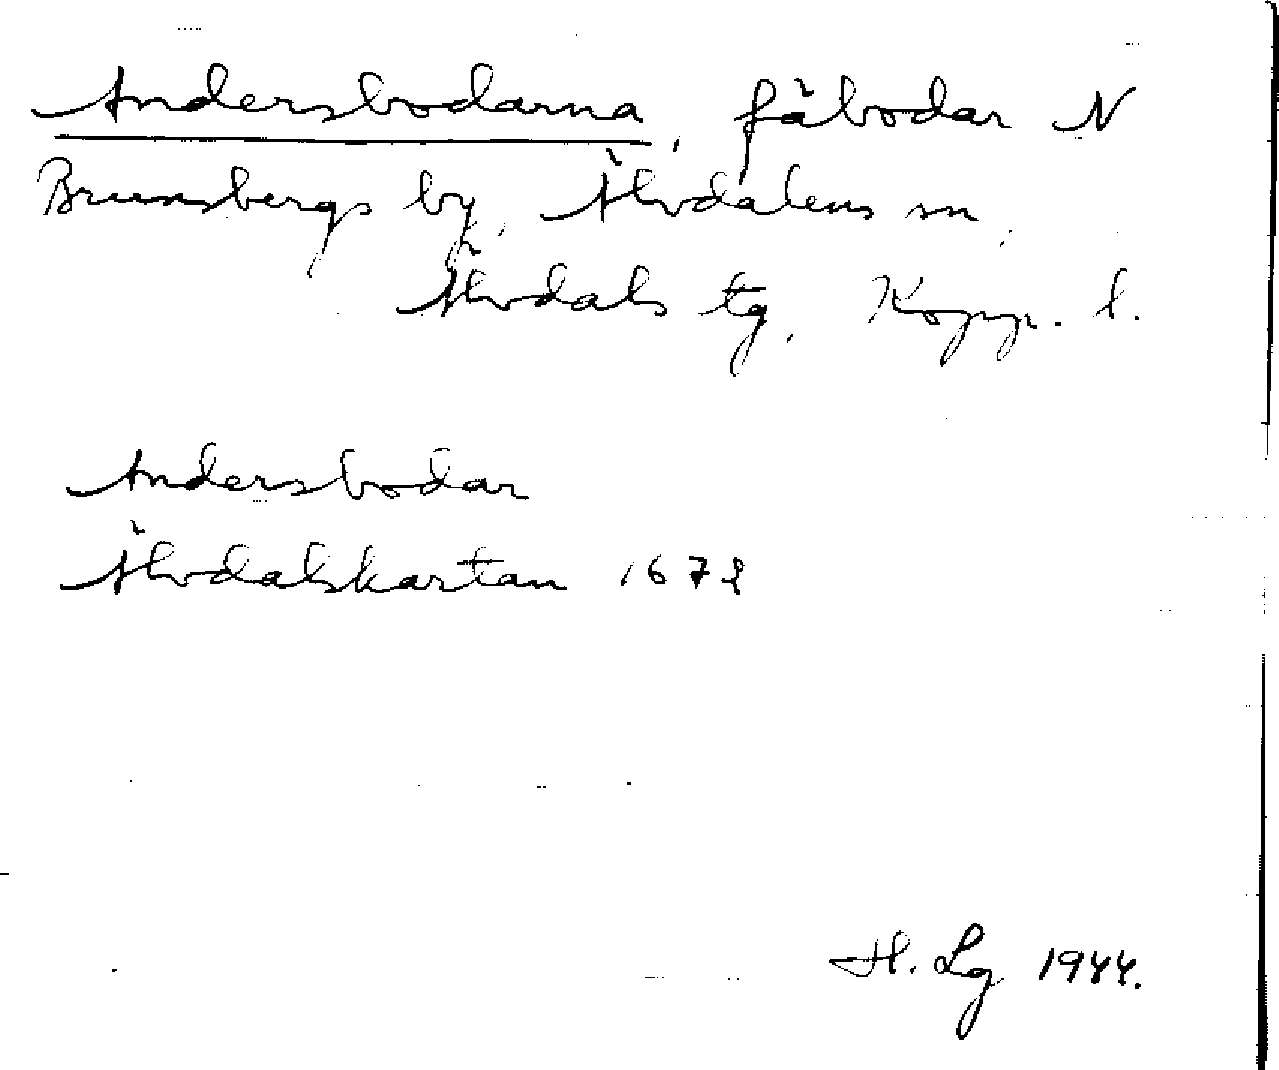 Andersbodarna, fäbodar N
Brunsbergs by, Älvdalens sn,
Älvdals tg, Kopp. l.
Andersbodar
Älvdalskartan 1678
H. Lg 1944.